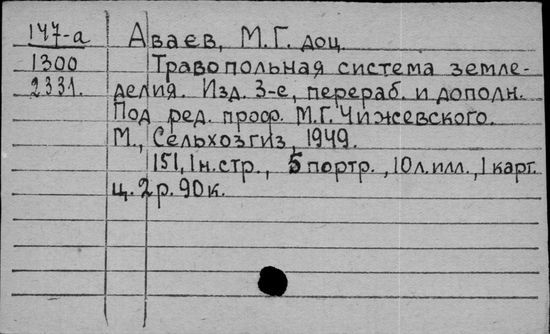 147-а Аваев, М.Г. доц.
1300 Травопольная система земле-
2331. делия. Изд. 3-е, перераб. и дополн.
Под ред. проф. М.Г. Чижевского.
М., Сельхозгиз, 1949.
151, 1 н. стр., 5 портр., 10 л. илл., 1 карт.
ц. 2 р. 90 к.